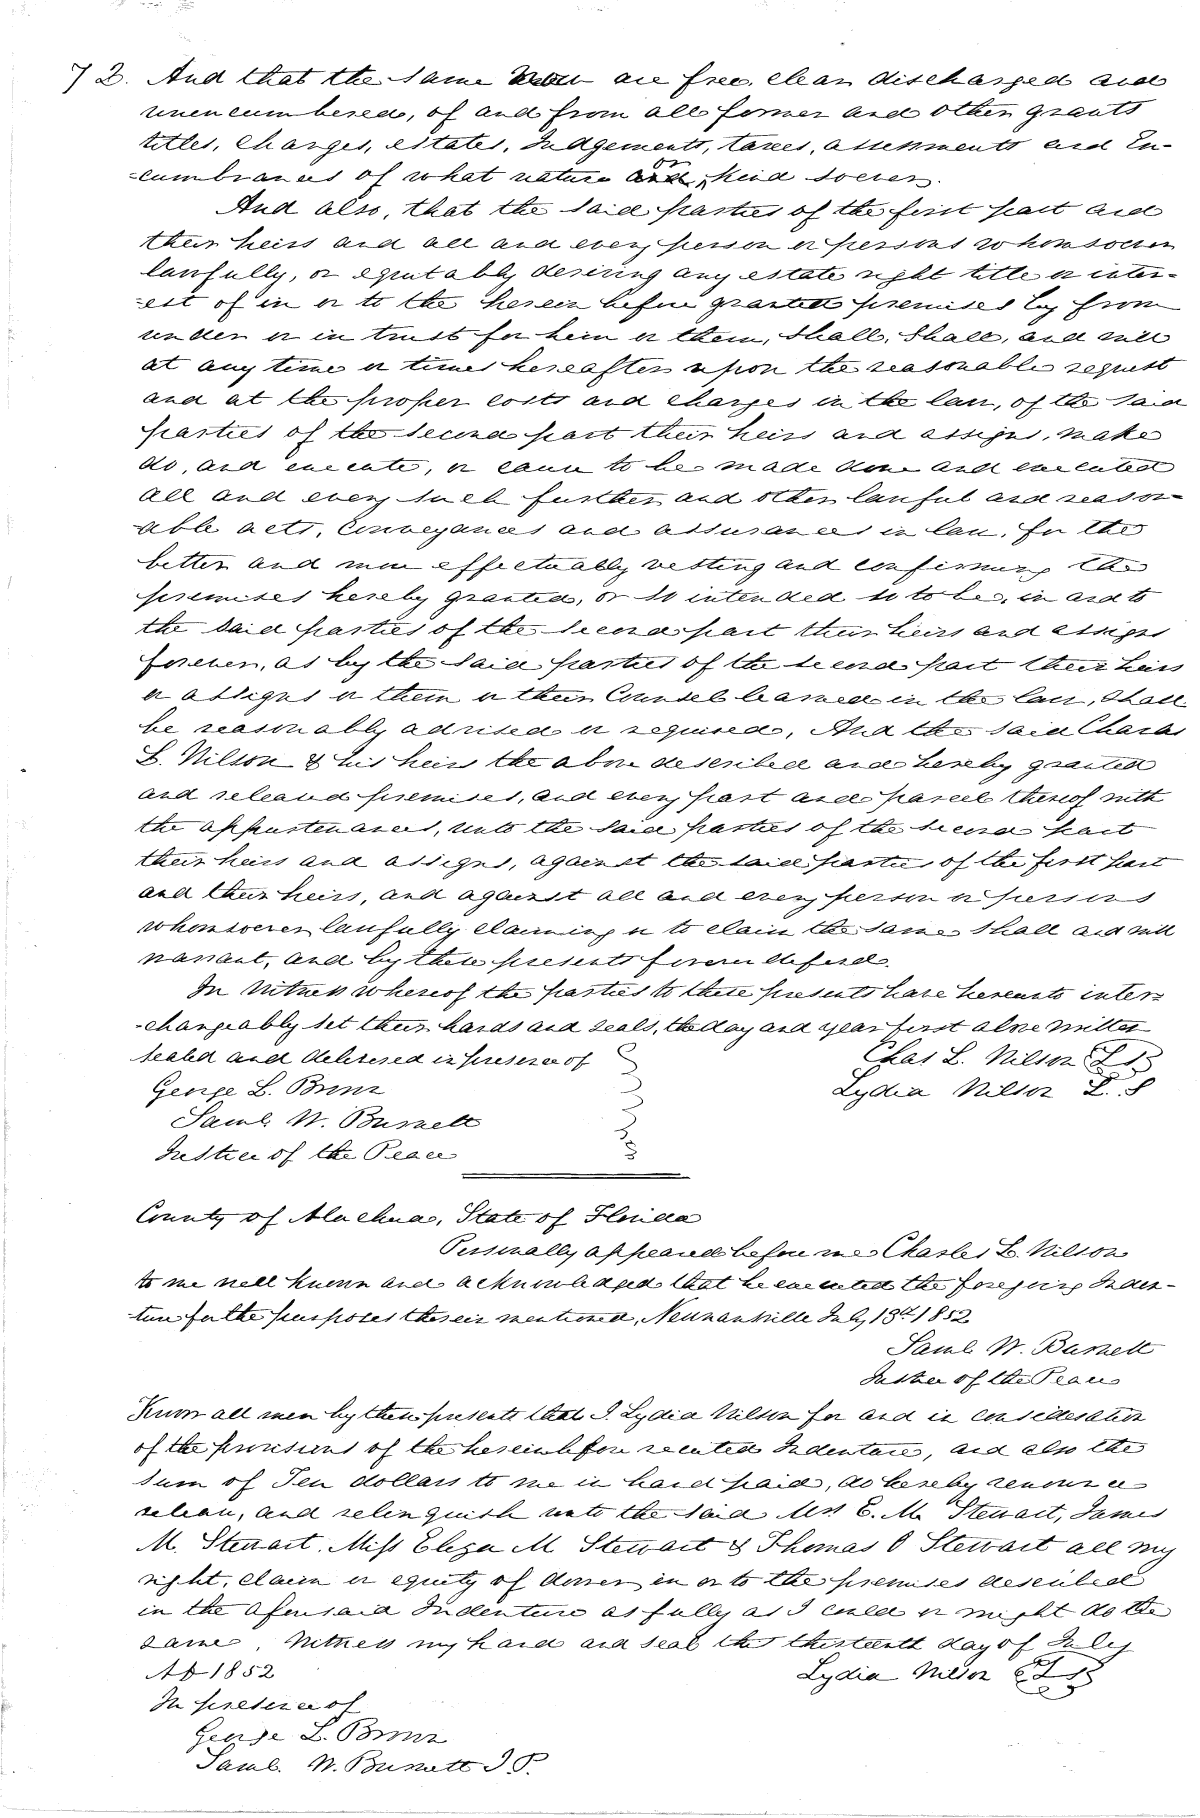 72. And that the same now are free, clear discharged and
unencumbered, of and from all former and other grants
titles, charges, estates, Judgements, taxes, assessments and In-
-cumbrances of what nature or kind soever.
And also, that the said parties of the first part and
their heirs and all and every person or persons whomsoever
lawfully, or equitably desiring any estate right title or inter-
-est of in or to the herein before granted premises by from
under or in trust for him or them, shall, shall, and will
at any time or times hereafter upon the reasonable request
and at the proper costs and charges in the law, of the said
parties of the second part their heirs and assigns, make
do, and execute, or cause to be made done and executed
all and every such further and other lawful and reason-
-able acts, conveyances and assurances in law, for the
better and more effectually vesting and confirming the
premises hereby granted, or so intended so to be, in and to
the said parties of the second part their heirs and assigns
forever, as by the said parties of the second part their heirs
or assigns or them or their Counsel learned in the law, shall
be reasonably advised or required, And the said Charles
L. Wilson & his heirs the above described and hereby granted
and released premises, and every part and parcel thereof with
the appurtenances, unto the said parties of the second part
their heirs and assigns, against the said parties of the first part
and their heirs, and against all and every person or persons
whomsoever lawfully claiming or to claim the same shall and will
warrant, and by these presents forever defend.
In Witness whereof the parties to these presents have hereunto inter-
-changeably set their hands and seals, the day and year first above written
Sealed and delivered in presence of Chas L. Wilson L S
George L. Brown Lydia Wilson L. S
Saml. W. Burnett
Justice of the Peace
County of Alachua, State of Florida
Personally appeared before me Charles L. Wilson
to me well known and acknowledged that he executed the foregoing Inden-
ture for the purposes therein mentioned, Newnansville July 13th 1852
Saml. W. Burnett
Justice of the Peace
Know all men by these presents that I, Lydia Wilson for and in consideration
of the provisions of the hereinbefore recited Indenture, and also the
sum of Ten dollars to me in hand paid, do hereby renounce
release, and relinquish unto the said Mrs E. M. Stewart, James
M. Stewart. Miss Eliza M Stewart & Thomas O Stewart all my
right, claim or equity of dower in or to the premises described
in the aforesaid Indenture as fully as I could or might do the
same. Witness my hand and seal this thirteenth day of July
AD 1852 Lydia Wilson L S
In presence of
George L. Brown
Saml. W. Burnett J P.